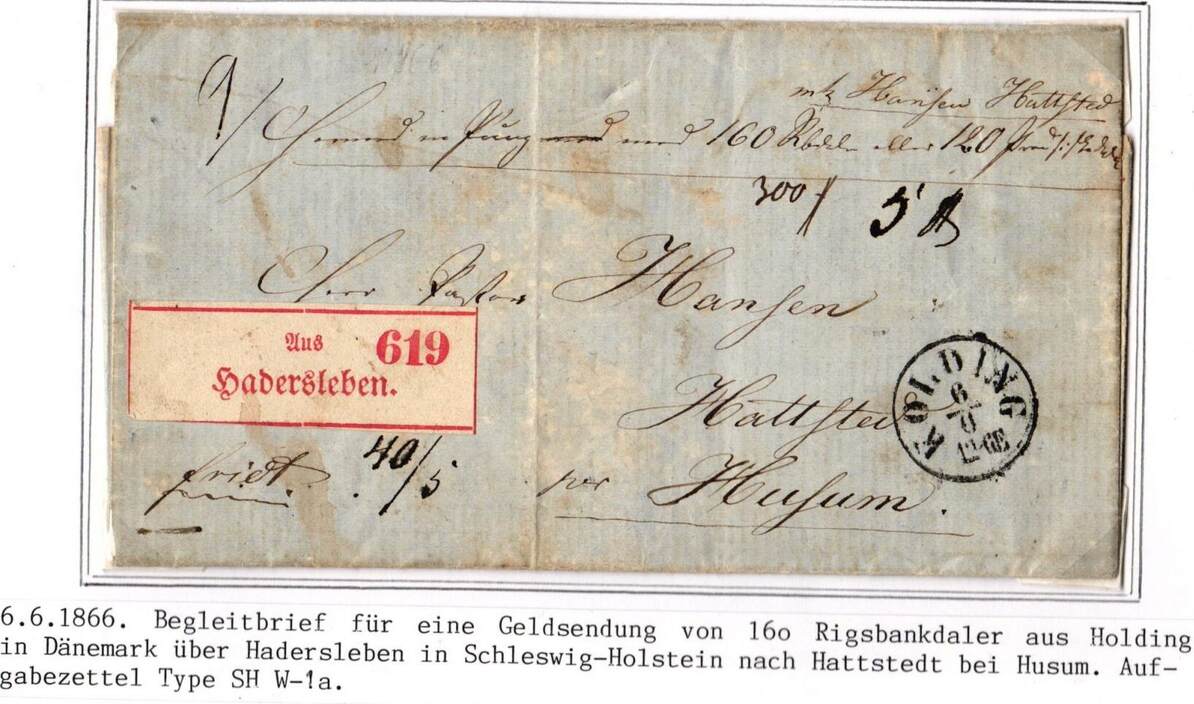 mrk Hansen Hattsted
med 160 Rbdlr eller 120
300
5 ℔
Herr Pastor Hansen
Aus 619
Hadersleben.
KOLDING
6/6
12-GE
Hattsted
40/5
per Husum.
6.6.1866. Begleitbrief für eine Geldsendung von 16o Rigsbankdaler aus Holding
in Dänemark über Hadersleben in Schleswig-Holstein nach Hattstedt bei Husum. Auf-
gabezettel Type SH W-1a.